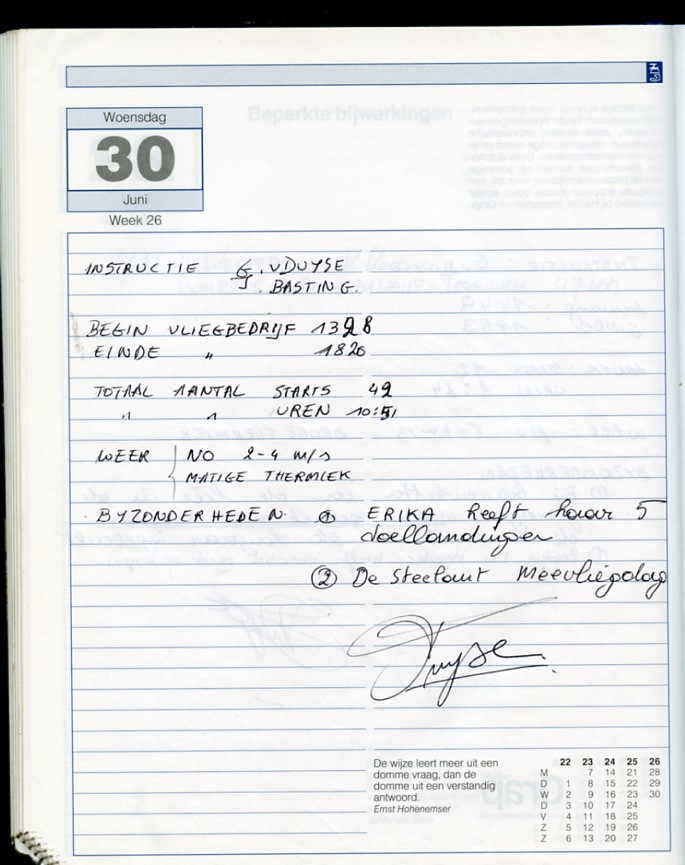 Woensdag
30
Juni
Week 26
INSTRUCTIE G. VDUYSE
J. BASTING.
BEGIN VLIEGBEDRIJF 1328
EINDE " 1820
TOTAAL AANTAL STARTS 42
" " UREN 10:51
WEER NO 2-4 m/s
MATIGE THERMIEK
BYZONDERHEDEN. ① ERIKA heeft haar 5
doellandingen
② De Steelant Meevliegdag
De wijze leert meer uit een
domme vraag, dan de
domme uit een verstandig
antwoord.
Ernst Hohenemser
22 23 24 25 26
M 7 14 21 28
D 1 8 15 22 29
W 2 9 16 23 30
D 3 10 17 24
V 4 11 18 25
Z 5 12 19 26
Z 6 13 20 27